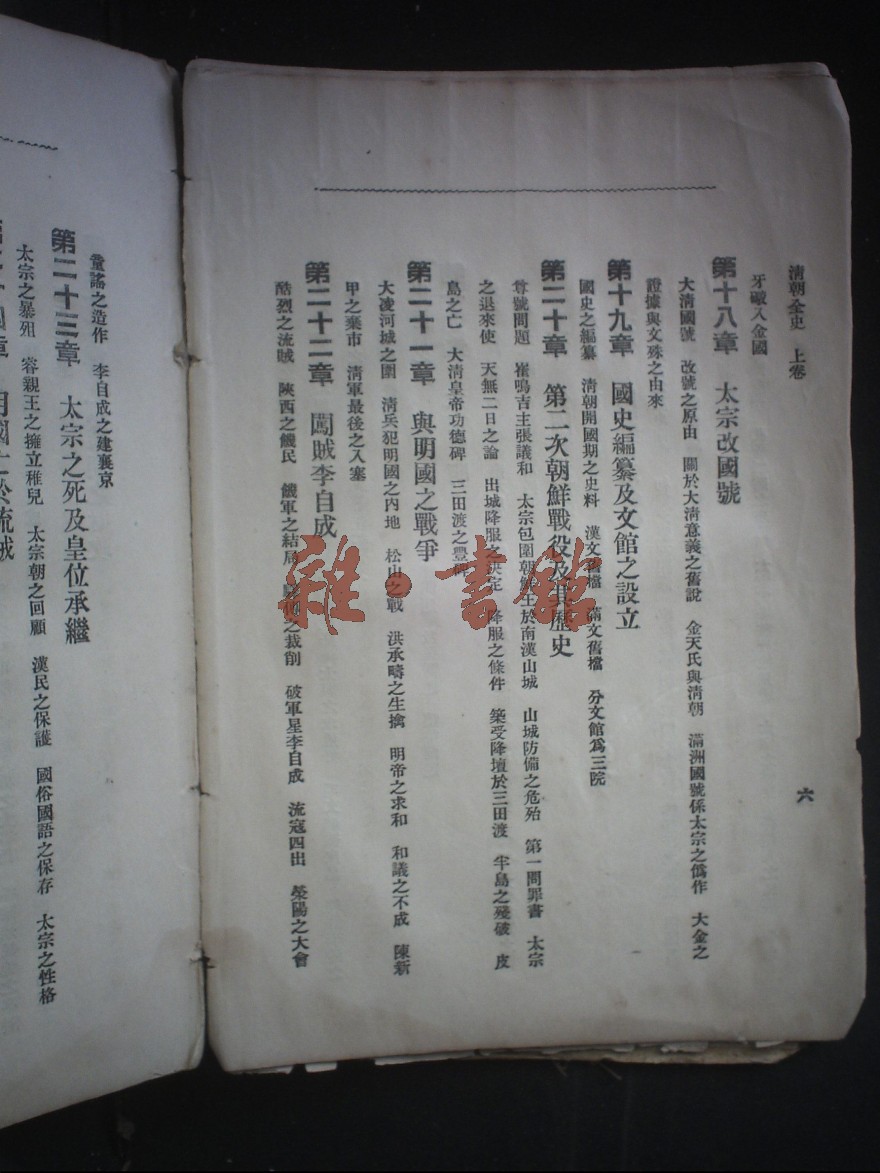 清朝全史 上卷
六
牙礮入金國
第十八章 太宗改國號
大清國號 改號之原由 關於大清意義之舊說 金天氏與清朝 滿洲國號係太宗之僞作 大金之
證據與文殊之由來
第十九章 國史編纂及文館之設立
國史之編纂 清朝開國期之史料 漢文舊檔 滿文舊檔 分文館爲三院
第二十章 第二次朝鮮戰役及其歷史
尊號問題 崔鳴吉主張議和 太宗包圍朝鮮王於南漢山城 山城防備之危殆 第一問罪書 太宗
之退來使 天無二日之論 出城降服之決定 降服之條件 築受降壇於三田渡 半島之殘破 皮
島之亡 大清皇帝功德碑 三田渡之豐碑
第二十一章 與明國之戰爭
大凌河城之圍 清兵犯明國之內地 松山之戰 洪承疇之生擒 明帝之求和 和議之不成 陳新
甲之棄市 清軍最後之入塞
第二十二章 闖賊李自成
酷烈之流賊 陝西之饑民 饑軍之結局 之裁削 破軍星李自成 流寇四出 滎陽之大會
童謠之造作 李自成之建襄京
第二十三章 太宗之死及皇位承繼
太宗之暴殂 睿親王之擁立稚兒 太宗朝之回顧 漢民之保護 國俗國語之保存 太宗之性格
雜·書館